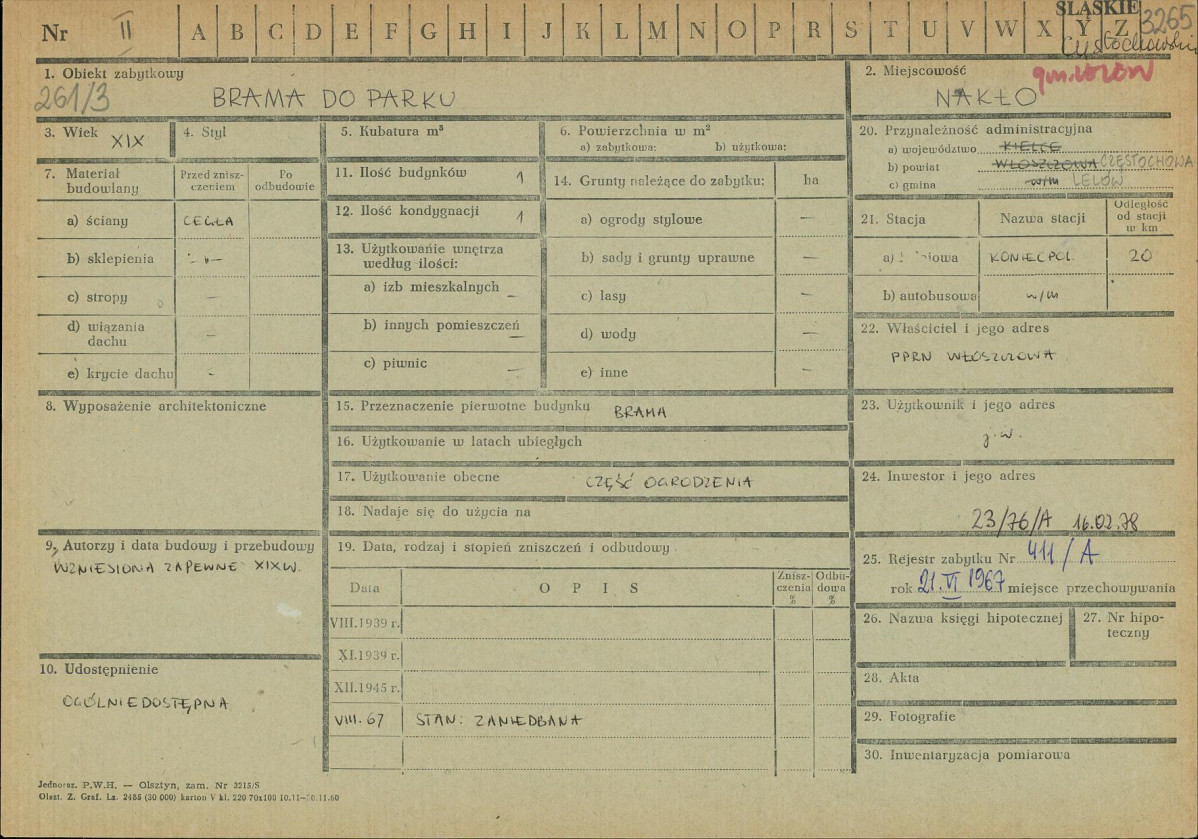 ŚLĄSKIE
3265
Nr II A B C D E F G H I J K L M N O P R S T U V W X Y Z
gm. LELÓW
1. Obiekt zabytkowy
261/3 BRAMA DO PARKU
2. Miejscowość
NAKŁO
3. Wiek XIX
4. Styl
5. Kubatura m³
6. Powierzchnia w m²
a) zabytkowa: b) użytkowa:
20. Przynależność administracyjna
a) województwo KIELCE
b) powiat WŁOSZCZOWA CZĘSTOCHOWA
c) gmina w/m LELÓW
7. Materiał budowlany
Przed zniszczeniem
Po odbudowie
a) ściany CEGŁA
b) sklepienia -"-
c) stropy —
d) wiązania dachu —
e) krycie dachu -
11. Ilość budynków 1
12. Ilość kondygnacji 1
13. Użytkowańie wnętrza
według ilości:
a) izb mieszkalnych —
b) innych pomieszczeń —
c) piwnic —
14. Grunty należące do zabytku: ha
a) ogrody stylowe —
b) sady i grunty uprawne —
c) lasy —
d) wody —
e) inne —
21. Stacja Nazwa stacji
Odległość
od stacji
w km
a) KONIECPOL 20
b) autobusowa w/m
22. Właściciel i jego adres
PPRN WŁOSZCZOWA
8. Wyposażenie architektoniczne
15. Przeznaczenie pierwotne budynku BRAMA
16. Użytkowanie w latach ubiegłych
17. Użytkowanie obecne CZĘŚĆ OGRODZENIA
18. Nadaje się do użycia na
23. Użytkownik i jego adres
j.w.
24. Inwestor i jego adres
23/76/A 16.02.78
9. Autorzy i data budowy i przebudowy
WZNIESIONA ZAPEWNE XIX W.
19. Data, rodzaj i stopień zniszczeń i odbudowy
Data O P I S
Zniszczenia %
Odbudowa %
VIII.1939 r.
XI.1939 r.
XII.1945 r.
VIII.67 STAN: ZANIEDBANA
25. Rejestr zabytku Nr 411/A
rok 21.VI 1967 miejsce przechowywania
26. Nazwa księgi hipotecznej
27. Nr hipoteczny
28. Akta
29. Fotografie
30. Inwentaryzacja pomiarowa
10. Udostępnienie
OGÓLNIEDOSTĘPNA
Jednoraz. P.W.H. — Olsztyn, zam. Nr 3215/S
Olszt. Z. Graf. Lz. 2485 (30 000) karton V kl. 220 70x100